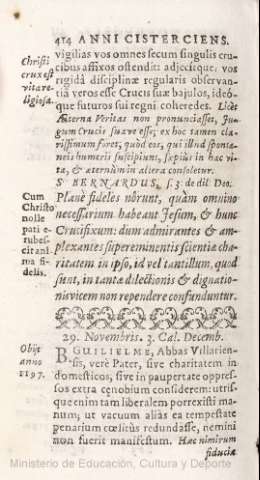 414 ANNI CISTERCIENS.
vigilias vos omnes secum singulis cru-
cibus affixos ostendit: adjecitque, vos
rigidâ disciplinæ regularis observan-
tiâ veros esse Crucis suæ bajulos, ideó-
que futuros sui regni coheredes. Licèt
Æterna Veritas non pronunciasset, Ju-
gum Crucis suave esse; ex hoc tamen cla-
rissimum foret, quòd eos, qui illud sponta-
neis humeris suscipiunt, sæpiùs in hac vi-
ta, & æternùm in altera consoletur.
S BERNARDUS, s. 3. de dil. Deo.
Planè fideles nôrunt, quàm omnino
necessarium habeant Jesum, & hunc
Crucifixum: dum admirantes & am-
plexantes supereminentis scientiæ cha-
ritatem in ipso, id vel tantillum, quod
sunt, in tantæ dilectionis & dignatio-
nis vicem non rependere confunduntur.
29. Novembris. 3. Cal. Decemb.
B GUILIELME, Abbas Villarien-
sis, verè Pater, sive charitatem in
domesticos, sive in pauperta te oppres-
sos extra cœnobium considerem: utris-
que enim tam liberalem porrexisti ma-
num; ut vacuum alias ea tempestate
penarium cœlitùs redundasse, nemini
non fuerit manifestum. Hac nimirum
fiduciâ
Christi
crux est
vita re-
ligiosa.
Cum
Christo
nolle
pati e-
rubes-
cit ani-
ma fi-
delis.
Obijt
anno
1197.
Ministerio de Educación, Cultura y Deporte